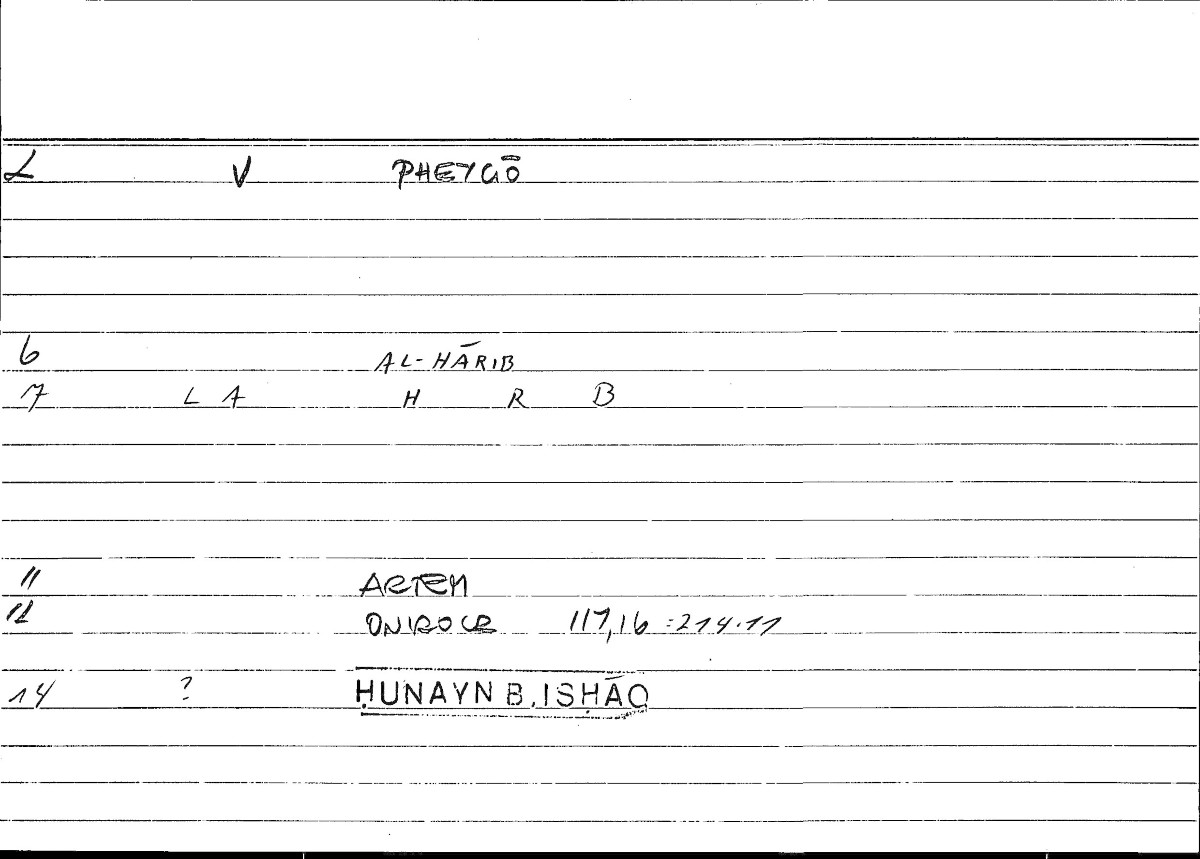 L V PHEYGŌ
6 AL-HĀRIB
7 L A H R B
11 ARTEM
12 ONIROCR 117,16 :214.11
14 ? ḤUNAYN B. ISḤĀQ